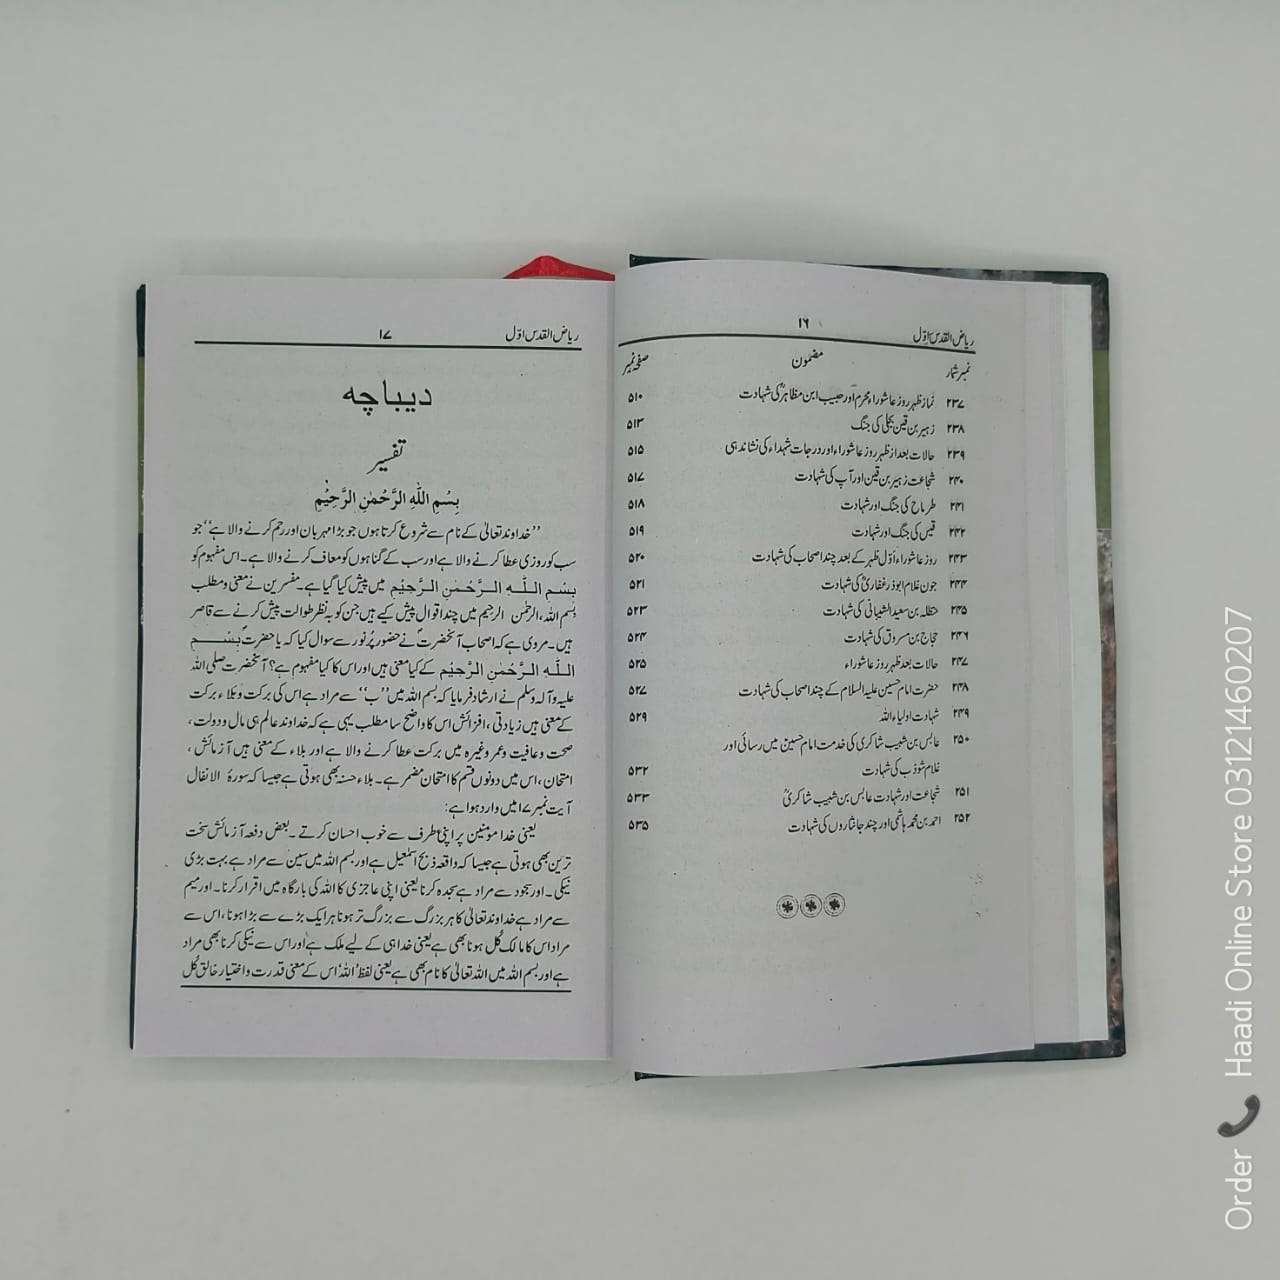 ریاض القدس اوّل ۱۶
نمبر شمار مضمون صفحہ نمبر
۲۳۷ نماز ظہر روز عاشوراء محرم اور حبیب ابن مظاہرؓ کی شہادت ۵۱۰
۲۳۸ زہیر بن قین بجلی کی جنگ ۵۱۳
۲۳۹ حالات بعد از ظہر روز عاشوراء اور درجات شہداء کی نشاندہی ۵۱۵
۲۴۰ شجاعت زہیر بن قین اور آپ کی شہادت ۵۱۷
۲۴۱ طرماح کی جنگ اور شہادت ۵۱۸
۲۴۲ قیس کی جنگ اور شہادت ۵۱۹
۲۴۳ روز عاشوراء اوّل ظہر کے بعد چند اصحاب کی شہادت ۵۲۰
۲۴۴ جون غلام ابوذر غفاریؓ کی شہادت ۵۲۱
۲۴۵ حنظلہ بن سعید الشیبانی کی شہادت ۵۲۳
۲۴۶ حجاج بن مسروق کی شہادت ۵۲۴
۲۴۷ حالات بعد ظہر روز عاشوراء ۵۲۵
۲۴۸ حضرت امام حسین علیہ السلام کے چند اصحاب کی شہادت ۵۲۷
۲۴۹ شہادت اولیاء اللہ ۵۲۹
۲۵۰ عابس بن شبیب شاکری کی خدمت امام حسینؑ میں رسائی اور
غلام شوذب کی شہادت ۵۳۲
۲۵۱ شجاعت اور شہادت عابس بن شبیب شاکریؒ ۵۳۳
۲۵۲ احمد بن محمد ہاشمی اور چند جانثاروں کی شہادت ۵۳۵
ریاض القدس اوّل ۱۷
دیباچہ
تفسیر
بِسْمِ اللهِ الرَّحْمٰنِ الرَّحِيْمِ
’’خداوند تعالیٰ کے نام سے شروع کرتا ہوں جو بڑا مہربان اور رحم کرنے والا ہے‘‘ جو
سب کو روزی عطا کرنے والا ہے اور سب کے گناہوں کو معاف کرنے والا ہے۔ اس مفہوم کو
بِسْمِ اللّٰهِ الرَّحْمٰنِ الرَّحِيْمِ میں پیش کیا گیا ہے۔ مفسرین نے معنی و مطلب
بسم اللہ، الرحمٰن الرحیم میں چند اقوال پیش کیے ہیں جن کو بہ نظر طوالت پیش کرنے سے قاصر
ہیں۔ مروی ہے کہ اصحاب آنحضرتؐ نے حضور پُرنور سے سوال کیا کہ یا حضرتؐ بِسْمِ
اللّٰهِ الرَّحْمٰنِ الرَّحِيْمِ کے کیا معنی ہیں اور اس کا کیا مفہوم ہے؟ آنحضرت صلی اللہ
علیہ وآلہ وسلم نے ارشاد فرمایا کہ بسم اللہ میں ’’ب‘‘ سے مراد ہے اس کی برکت و بلاء برکت
کے معنی ہیں زیادتی، افزائش اس کا واضح سا مطلب یہی ہے کہ خداوند عالم ہی مال و دولت،
صحت و عافیت و عمر وغیرہ میں برکت عطا کرنے والا ہے اور بلاء کے معنی ہیں آزمائش،
امتحان، اس میں دونوں قسم کا امتحان مضمر ہے۔ بلاء حسنہ بھی ہوتی ہے جیسا کہ سورۂ الانفال
آیت نمبر ۱۷ میں وارد ہوا ہے:
یعنی خدا مومنین پر اپنی طرف سے خوب احسان کرتے۔ بعض دفعہ آزمائش سخت
ترین بھی ہوتی ہے جیسا کہ واقعہ ذبح اسمٰعیل ہے اور بسم اللہ میں سین سے مراد ہے بہت بڑی
نیکی۔ اور سجود سے مراد ہے سجدہ کرنا یعنی اپنی عاجزی کا اللہ کی بارگاہ میں اقرار کرنا۔ اور میم
سے مراد ہے خداوند تعالیٰ کا ہر بزرگ سے بزرگ تر ہونا ہر ایک بڑے سے بڑا ہونا، اس سے
مراد اس کا مالک کُل ہونا بھی ہے یعنی خدا ہی کے لیے ملک ہے اور اس سے نیکی کرنا بھی مراد
ہے اور بسم اللہ میں اللہ تعالیٰ کا نام بھی ہے یعنی لفظ ’اللہ‘ اس کے معنی قدرت و اختیار خالق کُل
Order Haadi Online Store 03121460207